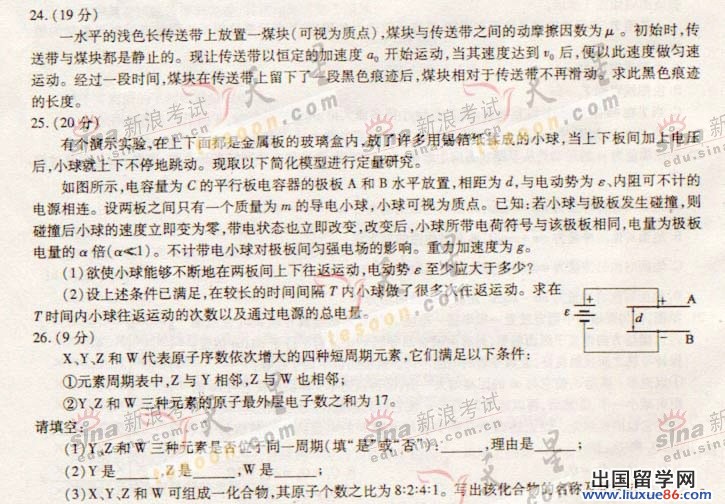 24.(19分)
一水平的浅色长传送带上放置一煤块(可视为质点),煤块与传送带之间的动摩擦因数为μ。初始时,传
送带与煤块都是静止的。现让传送带以恒定的加速度a₀开始运动,当其速度达到v₀后,便以此速度做匀速
运动。经过一段时间,煤块在传送带上留下了一段黑色痕迹后,煤块相对于传送带不再滑动。求此黑色痕迹
的长度。
25.(20分)
有个演示实验,在上下面都是金属板的玻璃盒内,放了许多用锡箔纸揉成的小球,当上下板间加上电压
后,小球就上下不停地跳动。现取以下简化模型进行定量研究。
如图所示,电容量为C的平行板电容器的极板A和B水平放置,相距为d,与电动势为ε、内阻可不计的
电源相连。设两板之间只有一个质量为m的导电小球,小球可视为质点。已知:若小球与极板发生碰撞,则
碰撞后小球的速度立即变为零,带电状态也立即改变,改变后,小球所带电荷符号与该极板相同,电量为极板
电量的α倍(α≪1)。不计带电小球对极板间匀强电场的影响。重力加速度为g。
(1)欲使小球能够不断地在两板间上下往返运动,电动势ε至少应大于多少?
(2)设上述条件已满足,在较长的时间间隔T内小球做了很多次往返运动。求在
T时间内小球往返运动的次数以及通过电源的总电量。
ε
+
−
+
−
d
A
B
26.(9分)
X、Y、Z和W代表原子序数依次增大的四种短周期元素,它们满足以下条件:
①元素周期表中,Z与Y相邻,Z与W也相邻;
②Y、Z和W三种元素的原子最外层电子数之和为17。
请填空:
(1)Y、Z和W三种元素是否位于同一周期(填“是”或“否”):______,理由是______;
(2)Y是______,Z是______,W是______;
(3)X、Y、Z和W可组成一化合物,其原子个数之比为8:2:4:1。写出该化合物的名称及
天星
tesoon.com
sina新浪考试
edu.sina.com
出国留学网
www.liuxue86.com